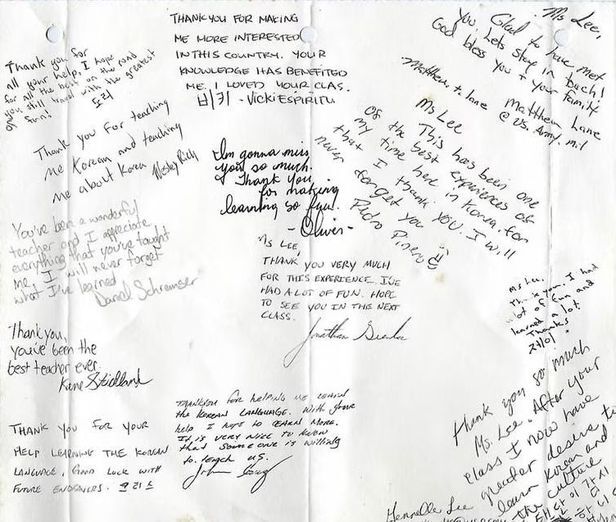 Thank you for
all your help, I hope
for all the best on the road
you still travel with the greatest
of fun!
THANK YOU FOR MAKING
ME MORE INTERESTED
IN THIS COUNTRY. YOUR
KNOWLEDGE HAS BENEFITED
ME. I LOVED YOUR CLAS.
- VICKI ESPIRITU
Ms Lee,
Glad to have met
you Lets stay in touch!
God bless you & your family
Matthew.t.lane
Matthew Lane
@US.Army.mil
Thank you for teaching
me Korean and teaching
me about Korea
Rich
I'm gonna miss
you so much.
Thank you
for making
learning so fun.
- Oliver -
Ms Lee
This has been one
of the best experiences of
my time here in Korea. for
that I thank you. I will
never forget you
Pedro
You've been a wonderful
teacher and I appreciate
everything that you've taught
me. I will never forget
what I've learned
Daniel
Ms LEE,
THANK YOU VERY MUCH
FOR THIS EXPERIENCE. I'VE
HAD A LOT OF FUN. HOPE
TO SEE YOU IN THE NEXT
CLASS.
Jonathan
Ms Lee,
I had
lot of fun and
learned a lot
Thanks!
Thank you,
you've been the
best teacher ever
Thankyou for helping me learn
the Korean Language. With your
help I got to learn more.
It is very nice to know
that someone is willing
to teach us.
THANK YOU FOR YOUR
HELP LEARNING THE KOREAN
LANGUAGE. GOOD LUCK WITH
FUTURE ENDEAVERS.
Thank you so much
Ms. Lee. After your
class I now have
greater desire to
learn Korean and
the culture
Lee